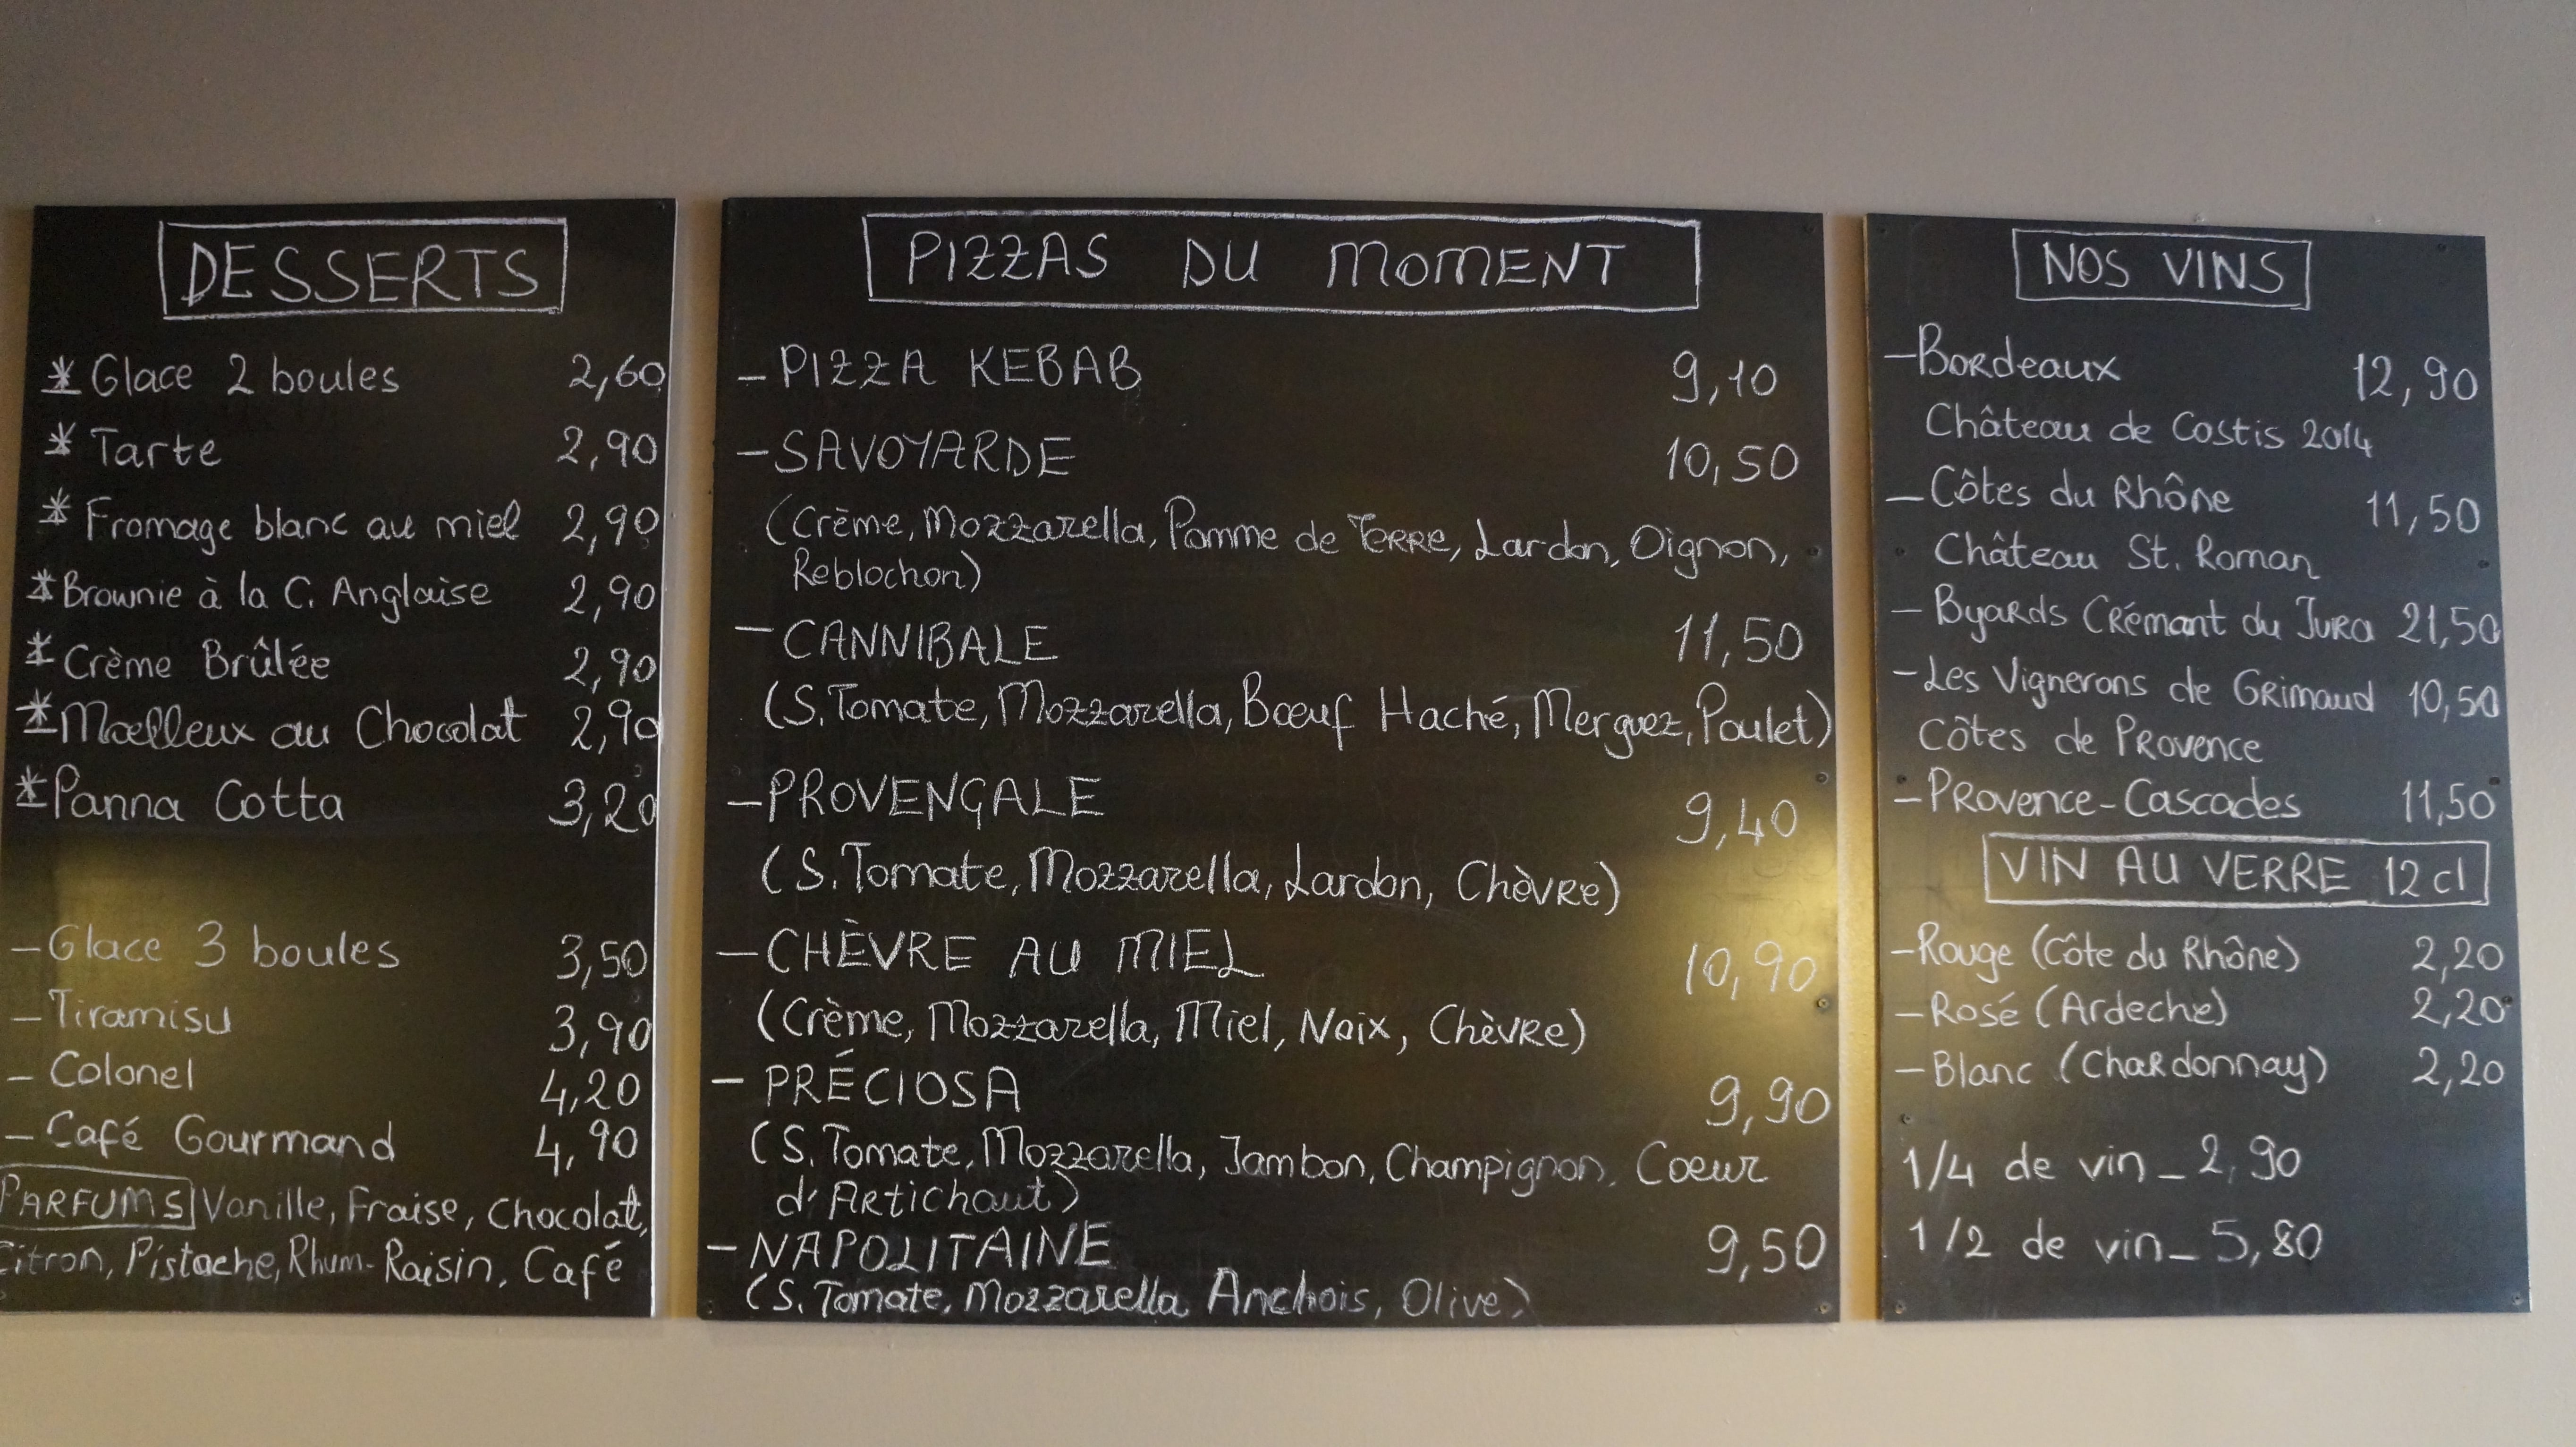 DESSERTS
* Glace 2 boules 2,60
* Tarte 2,90
* Fromage blanc au miel 2,90
* Brownie à la C. Anglaise 2,90
* Crème Brûlée 2,90
* Moelleux au Chocolat 2,90
* Panna Cotta 3,20
- Glace 3 boules 3,50
- Tiramisu 3,90
- Colonel 4,20
- Café Gourmand 4,90
PARFUMS Vanille, Fraise, Chocolat,
Citron, Pistache, Rhum-Raisin, Café
PIZZAS DU MOMENT
- PIZZA KEBAB 9,10
- SAVOYARDE 10,50
(Crème, Mozzarella, Pomme de Terre, Lardon, Oignon,
Reblochon)
- CANNIBALE 11,50
(S. Tomate, Mozzarella, Bœuf Haché, Merguez, Poulet)
- PROVENÇALE 9,40
(S. Tomate, Mozzarella, Lardon, Chèvre)
- CHÈVRE AU MIEL 10,90
(Crème, Mozzarella, Miel, Noix, Chèvre)
- PRÉCIOSA 9,90
(S. Tomate, Mozzarella, Jambon, Champignon, Coeur
d'Artichaut)
- NAPOLITAINE 9,50
(S. Tomate, Mozzarella Anchois, Olive)
NOS VINS
- Bordeaux 12,90
Château de Costis 2014
- Côtes du Rhône 11,50
Château St. Roman
- Byards Crémant du Jura 21,50
- Les Vignerons de Grimaud 10,50
Côtes de Provence
- Provence-Cascades 11,50
VIN AU VERRE 12 cl
- Rouge (Côte du Rhône) 2,20
- Rosé (Ardeche) 2,20
- Blanc (Chardonnay) 2,20
1/4 de vin - 2,90
1/2 de vin - 5,80